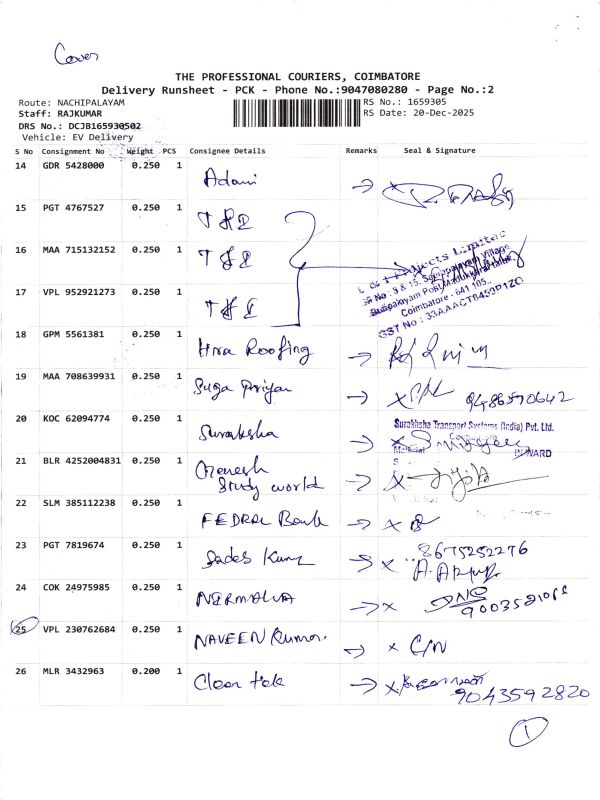 Cover
THE PROFESSIONAL COURIERS, COIMBATORE
Delivery Runsheet - PCK - Phone No.:9047080280 - Page No.:2
Route: NACHIPALAYAM
RS No.: 1659305
Staff: RAJKUMAR
RS Date: 20-Dec-2025
DRS No.: DCJB165930502
Vehicle: EV Delivery
S No Consignment No Weight PCS Consignee Details Remarks Seal & Signature
14 GDR 5428000 0.250 1 Adani
15 PGT 4767527 0.250 1
16 MAA 715132152 0.250 1
17 VPL 952921273 0.250 1
L & T Projects Limited
Coimbatore - 641 105.
GST No : 33AAACT8459P1ZO
18 GPM 5561381 0.250 1 Hira Roofing
19 MAA 708639931 0.250 1 Suga Priyan
20 KOC 62094774 0.250 1 Suraksha
Surakhsha Transport Systems (India) Pvt. Ltd.
INWARD
21 BLR 4252004831 0.250 1 Ganesh
Study world
22 SLM 385112238 0.250 1 FEDRAL Bank
23 PGT 7819674 0.250 1
8675252276
24 COK 24975985 0.250 1 NIRMALA
25 VPL 230762684 0.250 1 NAVEEN Kumar. C/N
26 MLR 3432963 0.200 1 Clear tek
9043592820
1